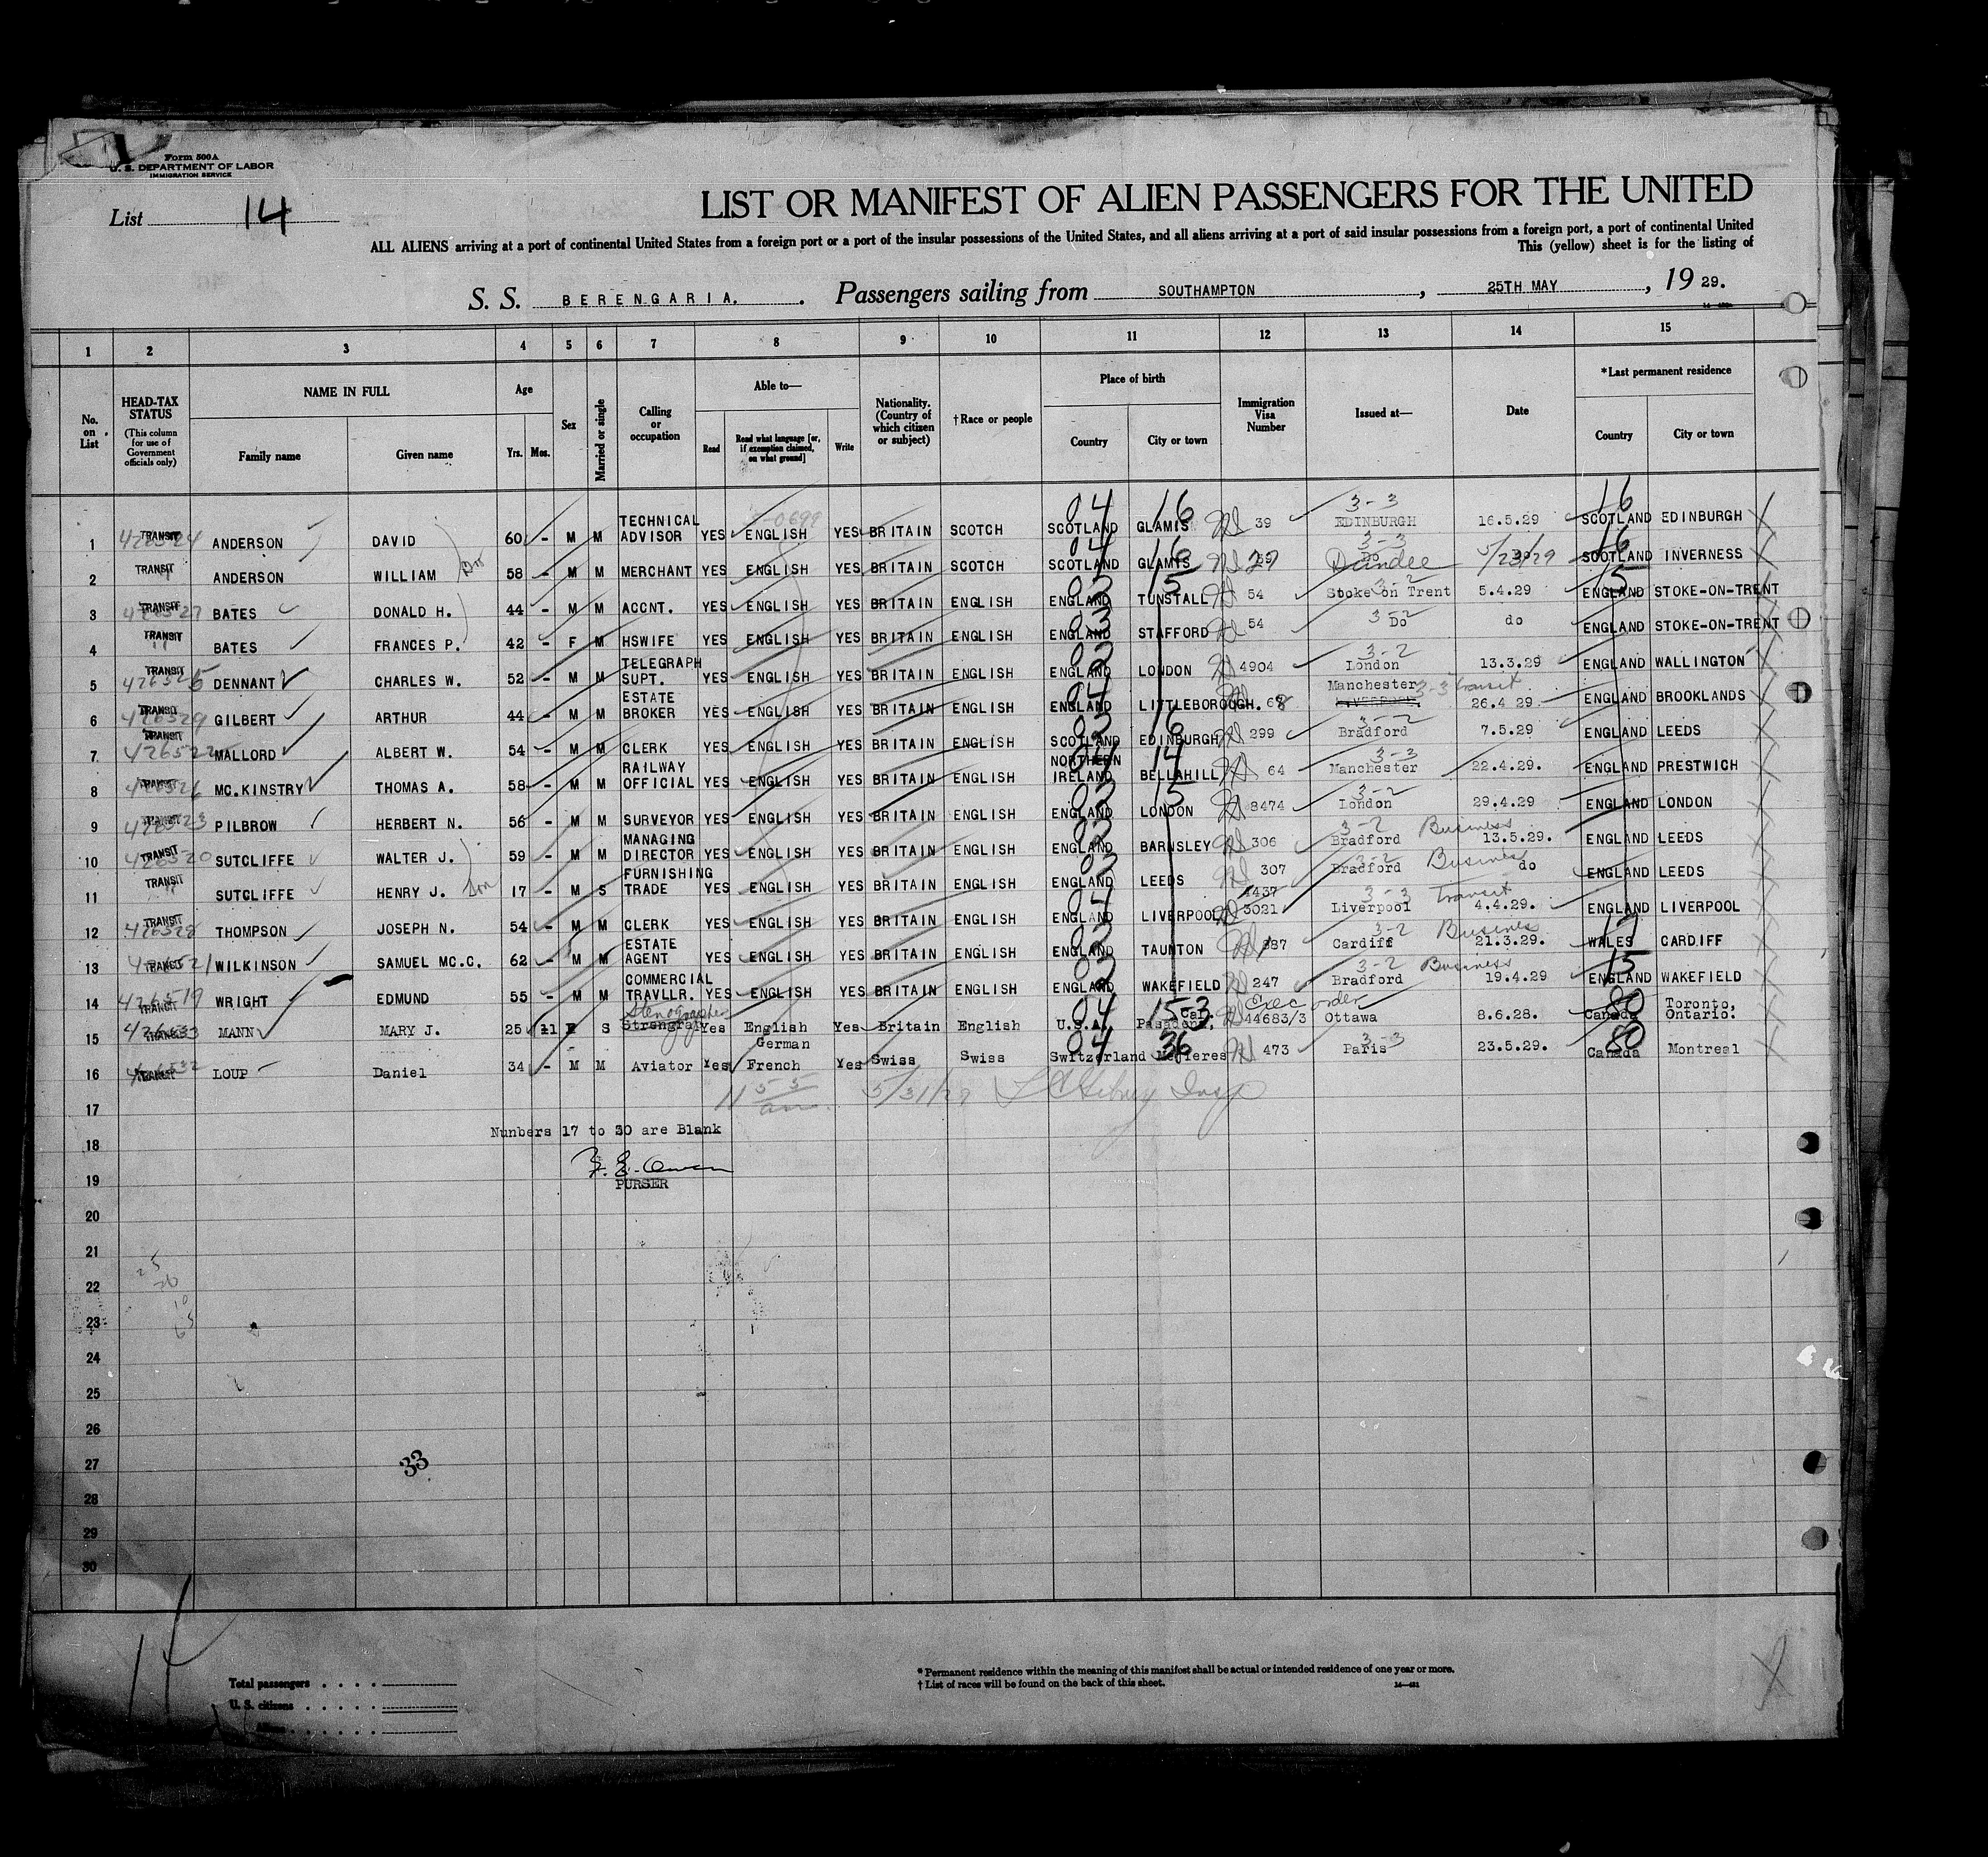 Form 500A
U. S. DEPARTMENT OF LABOR
IMMIGRATION SERVICE
List 14
LIST OR MANIFEST OF ALIEN PASSENGERS FOR THE UNITED
ALL ALIENS arriving at a port of continental United States from a foreign port or a port of the insular possessions of the United States, and all aliens arriving at a port of said insular possessions from a foreign port, a port of continental United
This (yellow) sheet is for the listing of
S. S. BERENGARIA. Passengers sailing from SOUTHAMPTON, 25TH MAY, 19 29.
1 2 3 4 5 6 7 8 9 10 11 12 13 14 15
No. on List
HEAD-TAX STATUS (This column for use of Government officials only)
NAME IN FULL
Family name Given name
Age Yrs. Mos.
Sex
Married or single
Calling or occupation
Able to—
Read Read what language [or, if exemption claimed, on what ground] Write
Nationality. (Country of which citizen or subject)
†Race or people
Place of birth
Country City or town
Immigration Visa Number
Issued at—
Date
*Last permanent residence
Country City or town
1 TRANSIT ANDERSON DAVID 60 - M M TECHNICAL ADVISOR YES ENGLISH YES BRITAIN SCOTCH SCOTLAND GLAMIS 39 3-3 EDINBURGH 16.5.29 SCOTLAND EDINBURGH
2 TRANSIT ANDERSON WILLIAM 58 - M M MERCHANT YES ENGLISH YES BRITAIN SCOTCH SCOTLAND GLAMIS 3-3 Dundee 5/23/29 SCOTLAND INVERNESS
3 TRANSIT BATES DONALD H. 44 - M M ACCNT. YES ENGLISH YES BRITAIN ENGLISH ENGLAND TUNSTALL 54 3-2 Stoke on Trent 5.4.29 ENGLAND STOKE-ON-TRENT
4 TRANSIT BATES FRANCES P. 42 - F M HSWIFE YES ENGLISH YES BRITAIN ENGLISH ENGLAND STAFFORD 54 Do do ENGLAND STOKE-ON-TRENT
5 TRANSIT DENNANT CHARLES W. 52 - M M TELEGRAPH SUPT. YES ENGLISH YES BRITAIN ENGLISH ENGLAND LONDON 4904 3-2 London 13.3.29 ENGLAND WALLINGTON
6 TRANSIT GILBERT ARTHUR 44 - M M ESTATE BROKER YES ENGLISH YES BRITAIN ENGLISH ENGLAND LITTLEBOROUGH. 68 Manchester 3-3 transit 26.4 29 ENGLAND BROOKLANDS
7 TRANSIT 426522 MALLORD ALBERT W. 54 - M M CLERK YES ENGLISH YES BRITAIN ENGLISH SCOTLAND EDINBURGH 299 3-2 Bradford 7.5.29 ENGLAND LEEDS
8 TRANSIT MC.KINSTRY THOMAS A. 58 - M M RAILWAY OFFICIAL YES ENGLISH YES BRITAIN ENGLISH NORTHERN IRELAND BELLAHILL 64 3-3 Manchester 22.4.29. ENGLAND PRESTWICH
9 PILBROW HERBERT N. 56 - M M SURVEYOR YES ENGLISH YES BRITAIN ENGLISH ENGLAND LONDON 8474 3-2 London 29.4.29 ENGLAND LONDON
10 TRANSIT SUTCLIFFE WALTER J. 59 - M M MANAGING DIRECTOR YES ENGLISH YES BRITAIN ENGLISH ENGLAND BARNSLEY 306 3-2 Bradford Business 13.5.29. ENGLAND LEEDS
11 TRANSIT SUTCLIFFE HENRY J. Son 17 - M S FURNISHING TRADE YES ENGLISH YES BRITAIN ENGLISH ENGLAND LEEDS 307 3-2 Bradford Business do ENGLAND LEEDS
12 TRANSIT THOMPSON JOSEPH N. 54 - M M CLERK YES ENGLISH YES BRITAIN ENGLISH ENGLAND LIVERPOOL 4437 3021 3-3 Liverpool transit 4.4.29. ENGLAND LIVERPOOL
13 TRANSIT WILKINSON SAMUEL MC.C. 62 - M M ESTATE AGENT YES ENGLISH YES BRITAIN ENGLISH ENGLAND TAUNTON 3-2 Cardiff Business 21.3.29. WALES CARDIFF
14 426519 TRANSIT WRIGHT EDMUND 55 - M M COMMERCIAL TRAVLLR. YES ENGLISH YES BRITAIN ENGLISH ENGLAND WAKEFIELD 247 3-2 Bradford Business 19.4.29 ENGLAND WAKEFIELD
15 TRANSIT MANN MARY J. 25 11 F S Stenographer Yes English Yes Britain English U.S.A. Pasadena, Cal. Exec order 44683/3 Ottawa 8.6.28. Canada Toronto, Ontario.
16 TRANSIT LOUP Daniel 34 - M M Aviator Yes German French Yes Swiss Swiss Switzerland 473 3-3 Paris 23.5.29. Canada Montreal
17
18
19
11 55 am 5/31/29
Nunbers 17 to 30 are Blank
PURSER
20
21
22
23
24
25
26
27
28
29
30
33
14
Total passengers
U. S. citizens
Aliens
* Permanent residence within the meaning of this manifest shall be actual or intended residence of one year or more.
† List of races will be found on the back of this sheet.